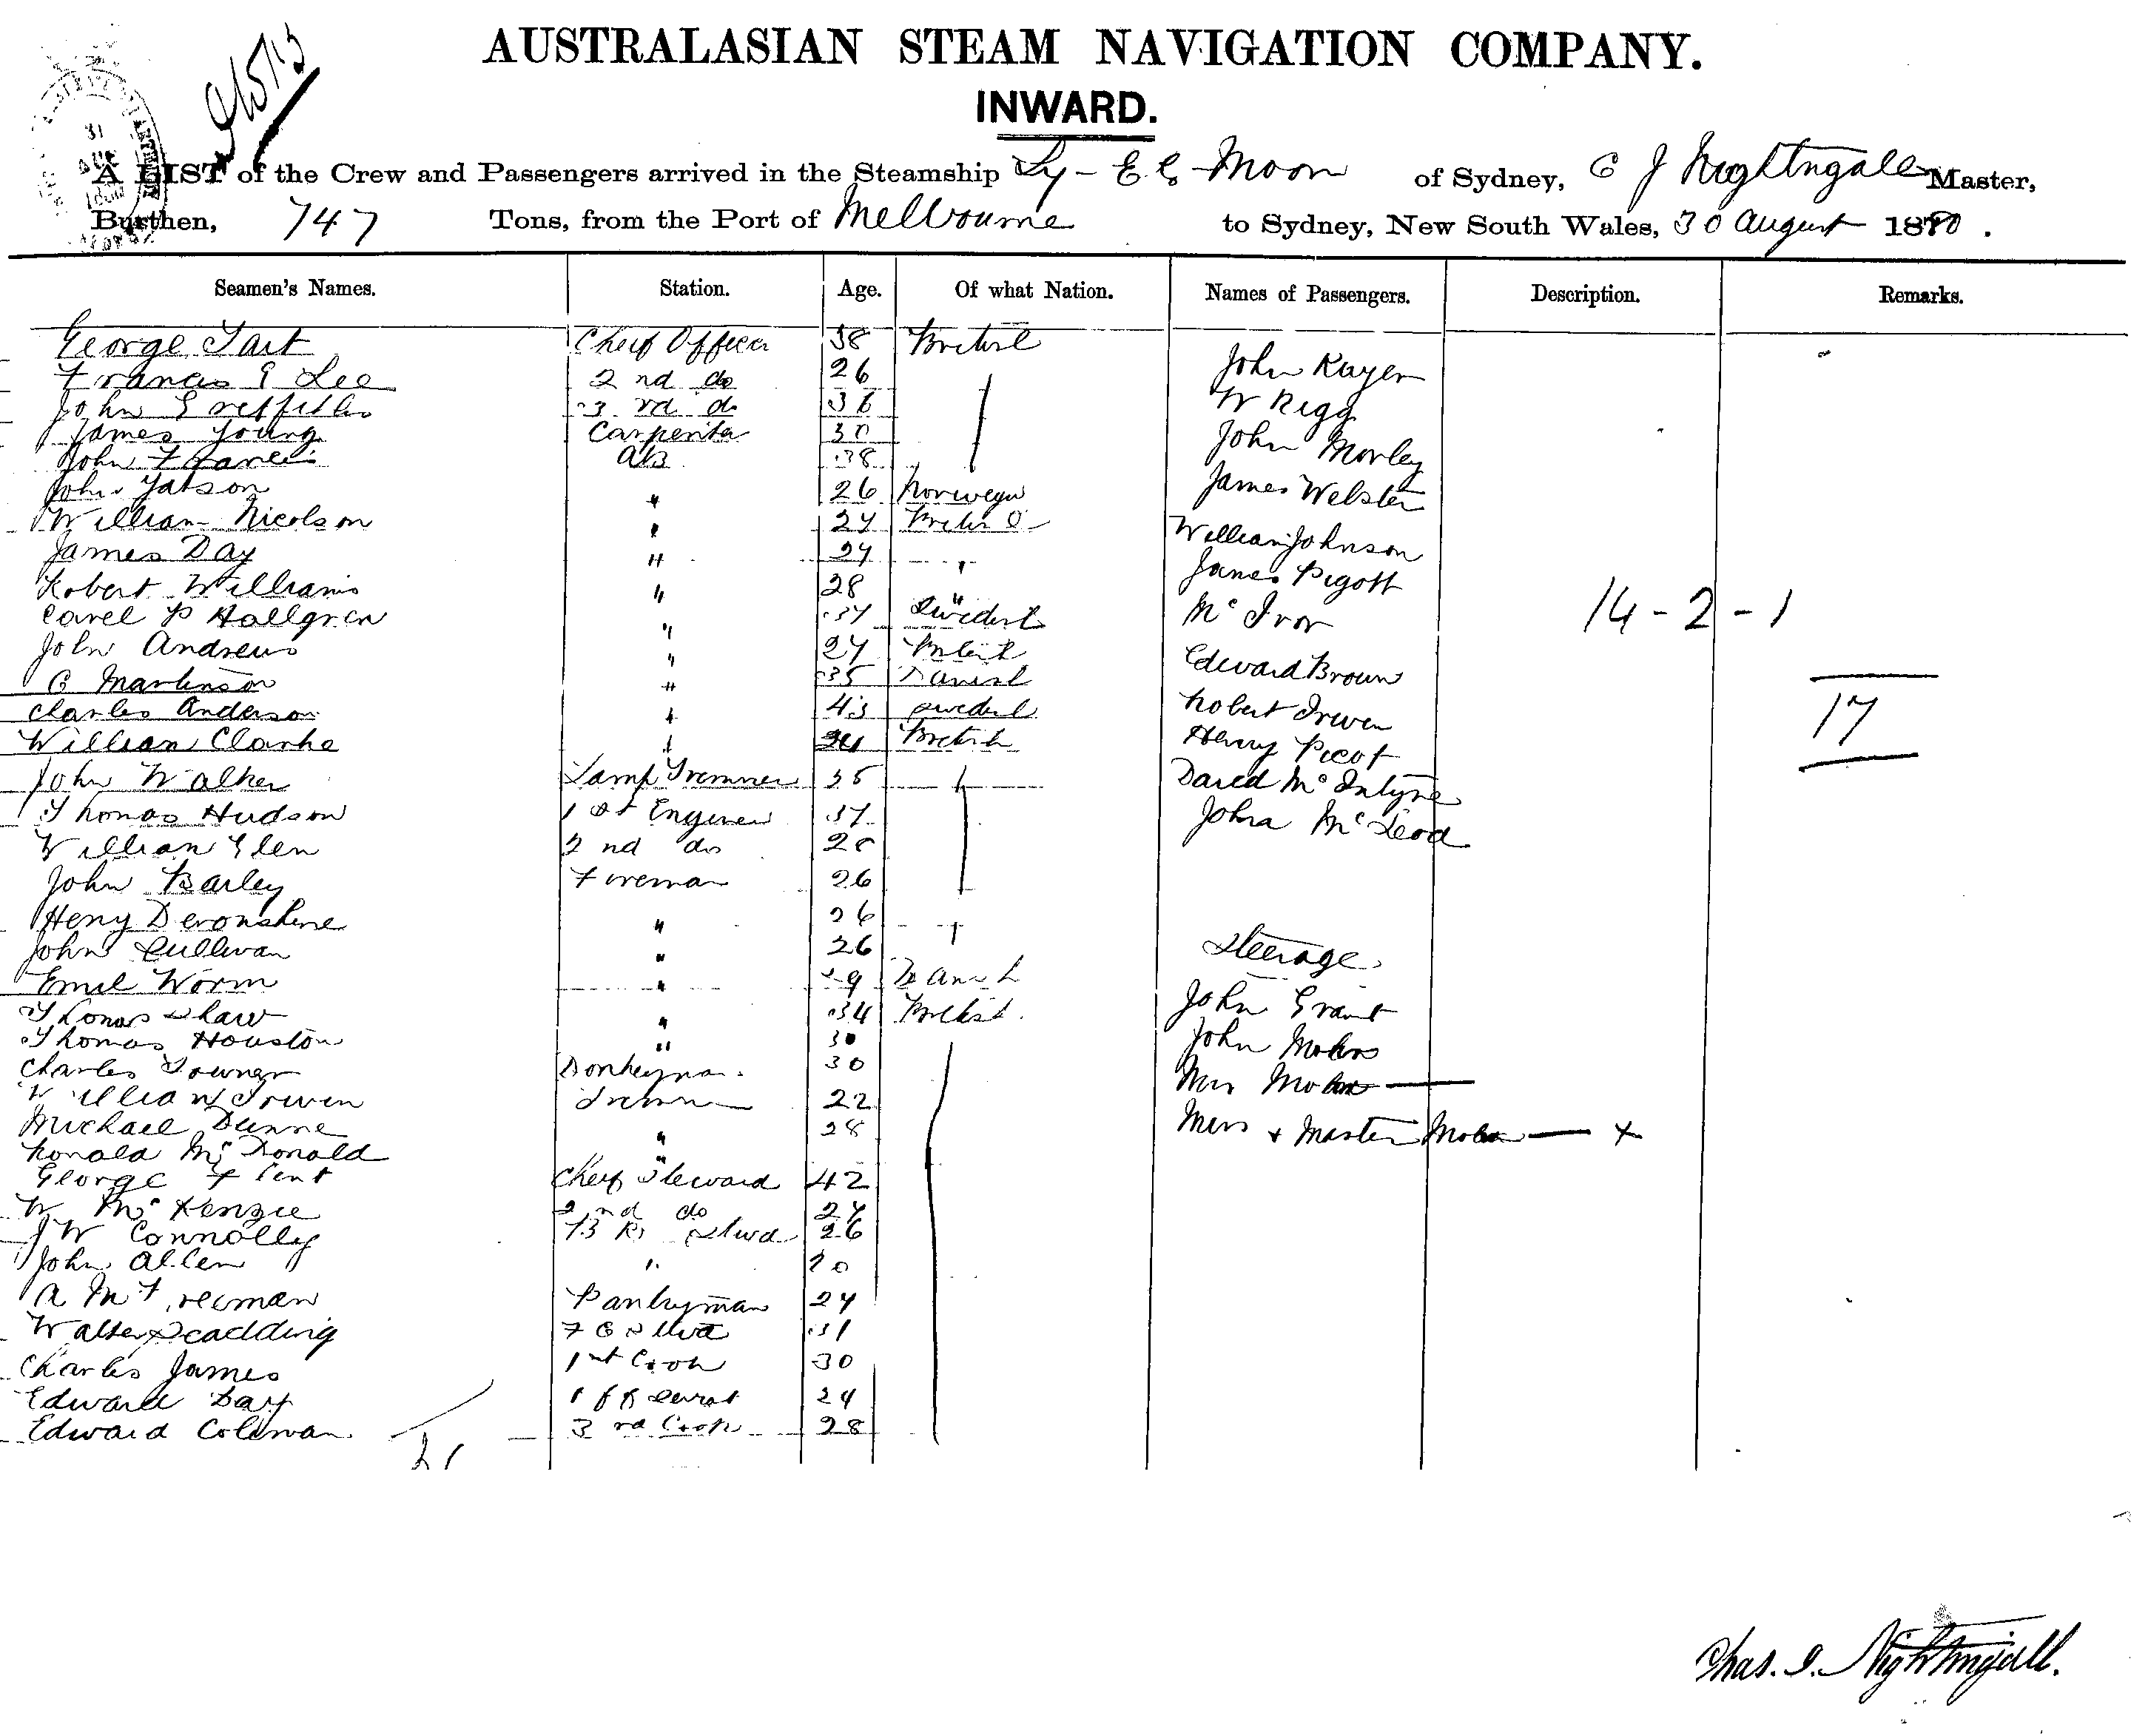 91573
AUSTRALASIAN STEAM NAVIGATION COMPANY.
INWARD.
31
A LIST of the Crew and Passengers arrived in the Steamship Ly-Ee-Moon of Sydney, C J Nightngale Master,
Burthen, 747 Tons, from the Port of Melbourne to Sydney, New South Wales, 30 August 1880.
Seamen's Names. Station. Age. Of what Nation. Names of Passengers. Description. Remarks.
George Tait Cheif Officer 38 British
Francis G Lee 2nd do 26
John Griffiths 3rd do
James Young Carpenter 30
John Francis AB 38
John Jatson " 26 Norwegn
William Nicolson " 27 British
James Day " 27 "
Robert Williams " 28 "
Carel P Hallgren " 37 Swedish
John Andrews " 27 British
C Martinson " 35 Danish
Charles Anderson " 43 Swedish
William Clarke " British
John Walker Lamp Trimmer 35 "
Thomas Hudson 1st Engineer 37
William Glen 2nd do 28
John Barley Fireman 26
Heny Devonshire " 26
John Sullivan " 26
Emil Worm " 29 Danish
Thomas Shaw " 34 British
Thomas Houston " 30
Charles Towner Donkeyman 30
William Irwin Trimmer 22
Michael Dunne " 28
Ronald McDonald "
George Flint Cheif Steward 42
W McKenzie 2nd do 27
J W Connolly 26
John Allen " 20
A M Freeman Pantryman 27
Walter Scadding F C Stwd 31
Charles James 1st Cook 30
Edward Day 24
Edward Coleman 3rd Cook 28
John Rayer
W Rigg
John Morley
James Webster
William Johnson
James Pigott
Mc Ivor
Edward Brown
Robert Irwin
Henry Picot
David McIntyre
John McLeod
Steerage
John Grant
John Mohr
Mrs Mohr
Miss & Master Mohr x
14-2-1
17
Chas. J. Nightingall.